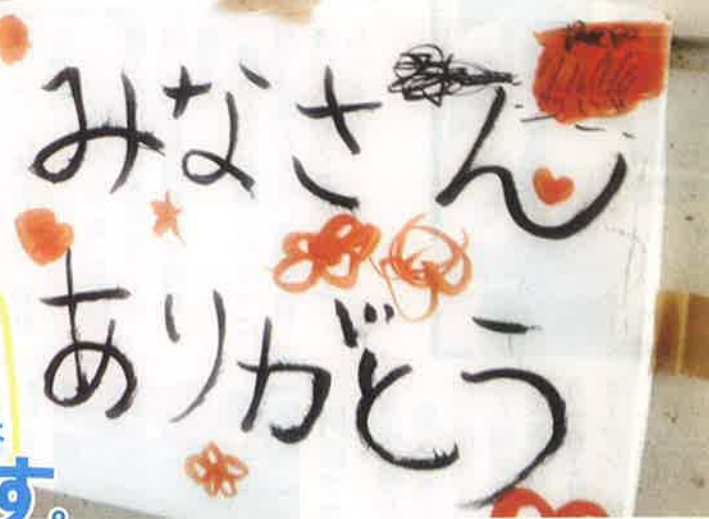 みなさん
ありがとう
す。